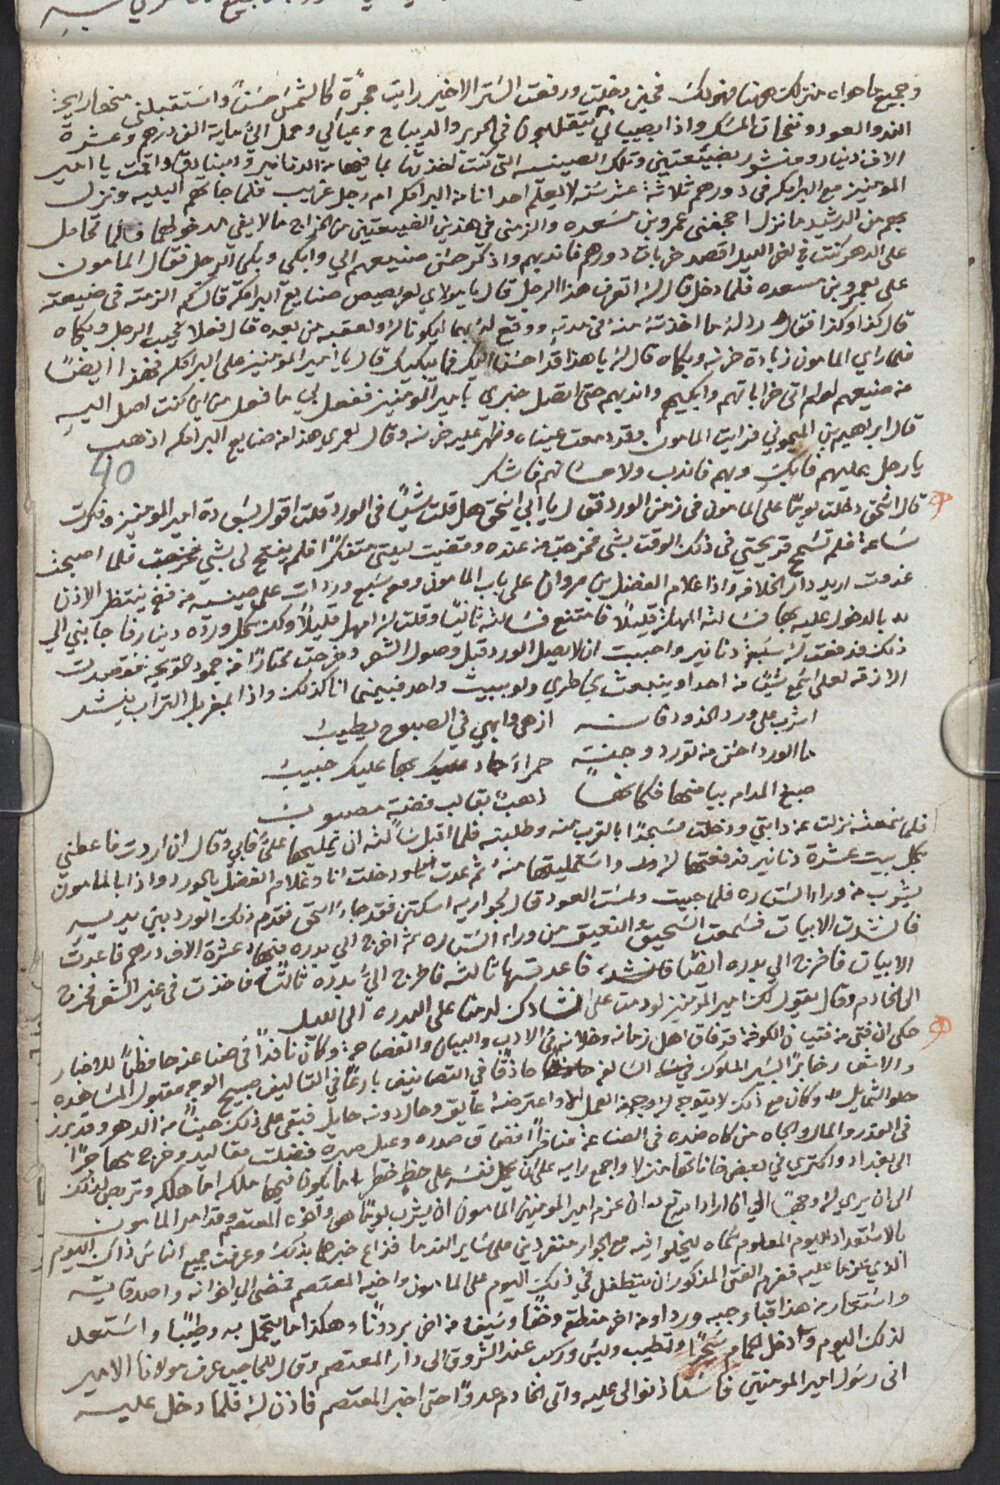 وجميع ما حواه منزلك ههنا فهو لك فحين دخلت ورفعت الستر الاخير رايت حجرة كالشمس حسنا واستقبلني منها رايحة
الند والعود ونفحات المسك واذا بصبياني يتقلبون في الحرير والديباج وعيالي وحمل الي ماية الف درهم وعشرة
الاف دينار ومنشور بضيعتين وتلك الصينيه التي كنت اخذتها بما فيها من الدنانير والبنادق واقمت يا امير
المومنين مع البرامكه في دورهم ثلاثة عشر سنه لا يعلم احد انا من البرامكه ام رجل غريب فلما جاتهم البليه ونزل
بهم من الرشيد ما نزل اجحفني عمرو بن مسعده والزمني في هذين الضيعتين من الخراج ما لا يفي مدخولهما فلما تحامل
علي الدهر كنت في اخر الليل اقصد خربات دورهم فاندبهم واذكر حسن صنيعهم الي وابكي وبكي الرجل فقال المامون
علي بعمرو بن مسعده فلما دخل قال له اتعرف هذا الرجل قال يا مولاي بعض صنايع البرامكة قال كم الزمته في ضيعته
قال كذا وكذا فقال رد له ما اخذته منه في مدته ووقع له بهما ليكونا له ولعقبه من بعده قال فعلا نحيب الرجل وبكاه
فلما راي المامون زيادة حزنه وبكاه قال له يا هذا قد احسنا اليك فما يبكيك قال يا امير المومنين علي البرامكه فهذا ايضا
من صنيعهم لو لم اتي خراباتهم وابكيهم واندبهم حتي اتصل خبري بامير المومنين ففعل بي ما فعل من اين كنت اصل اليه
قال ابراهيم بن الميموني فرايت المامون وقد دمعت عيناه وظهر عليه حزنه وقال لعمري هذا من صنايع البرامكه اذهب
يا رجل عليهم فابك وبهم فاندب ولاحسانهم فاشكر
40
قال اسحق دخلت يوما علي المامون في زمن الورد فقال يا ابي اسحق هل قلت شيئا في الورد قلت اقول بسعادة امير المومنين وفكرت
ساعة فلم تسمح قريحتي في ذلك الوقت بشي فخرجت من عنده ومضيت لبيتي متفكرا فلم يفتح لي بشي فخرجت فلما اصبحت
غدوت اريد دار الخلافه واذا غلام الفضل بن مروان علي باب المامون ومعه سبع وردات علي صينيه من فضه ينتظر الاذن
له بالدخول عليه بها فسالته المهله قليلا فامتنع فسالته ثانيا وقلت له امهل قليلا ولك بكل ورده دينار فاجابني الي
ذلك فدفعت له سبعة دنانير واحببت ان لا يصل الورد قبل وصول الشعر وخرجت محتارا من جمود القريحه فقصدت
الازقه لعلي اسمع شيا من احد او ينبعث بخاطري ولو ببيت واحد فبينما انا كذلك واذا بمغربل التراب ينشد
اشرب علي ورد الخدود فانه ازهي وابهي في الصبوح يطيب
ما الورد احسن من تورد وجنة حمراء جاد بها عليك حبيب
صبغ المدام بياضها فكانها ذهب بقالب فضة مصبوب
فلما سمعته نزلت عن دابتي ودخلت مسجدا بالقرب منه وطلبته فلما اقبل سالته ان يمليها علي فابي وقال ان اردت فاعطني
بكل بيت عشرة دنانير فدفعتها له واستمليتها منه ثم عدت ودخلت انا وغلام الفضل بالورد واذا بالمامون
يشرب من وراء الستاره فلما جيت ولمست العود قال لجواريه اسكتن فقد جاء اسحق فقدم ذلك الورد بين يديه
فانشدت الابيات فسمعت الشهيق والنعيق من وراء الستاره ثم اخرج الي بدره فيها عشرة الاف درهم فاعدت
الابيات فاخرج الي بدره ايضا فاعدتها ثالثه فاخرج الي بدره ثالثة فاخذت في غير الشعر فخرج
الي الخادم وقال يقول لك امير المومنين لو دمت علي انشادك لدمنا علي البدره الي الليل
حكي ان فتي من فتيان الكوفة قد فاق اهل زمانه وخلانه في الادب والبيان والفصاحة وكان نافذا في صناعته حافظا للاخبار
والاشعار خابر السير الملوك السالفه حاذقا في التصانيف بارعا في التاليف صبيح الوجه مقبول المشاهده
حلو الشمايل وكان مع ذلك لا يتوجه له وجهة العمل الا واعترضه عايق وحال دونه حايل فبقي علي ذلك حينا من الدهر وقد برز
في القدر والمال والجاه من كان ضده في الصناعة مناظرا فضاق صدره وعيل صبره فضلت مقاليد وخرج هاجرا
الي بغداد واكتري في بعض خاناتها منزلا واجمع رايه علي ان يحمل نفسه علي حظ خطر اما يكون فيها ملكه اما هلكه وتربص لذلك
الي ان يري له وجها الي ان اراد ان عزم امير المومنين المامون ان يشرب يوما هو واخوه المعتصم وقد امر المامون
بالاستعداد لليوم المعلوم سماه ليخلوا فيه مع الجوار منفردين علي ساير الندما فذاع خبرها بذلك وعرفت جميع الناس ذلك اليوم
الذي عزما عليه فعزم الفتي المذكور ان يتطفل في ذلك اليوم علي المامون واخيه المعتصم فمضي الي اخوانه واصدقايه
واستعار من هذا قبا وجبه وردا ومن اخر منطقه وخفا وسيفا ومن اخر برذونا وهكذا ما ليتجمل به وطيبا واستعمل
لذلك اليوم وادخل الحمام سحرا وتطيب ولبس وركب عند الشروق الي دار المعتصم وقال للحاجب عرف مولانا الامير
اني رسول امير المومنين فاستاذنوا لي عليه واتي الخادم عدوا حتي اخبر المعتصم فاذن له فلما دخل عليه